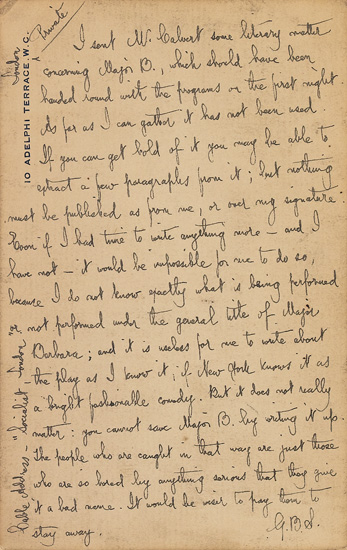 Private
10 ADELPHI TERRACE W.C.
London
I sent Mr. Calvert some literary matter
concerning Major B., which should have been
handed round with the programs on the first night.
As far as I can gather it has not been used.
If you can get hold of it you may be able to
extract a few paragraphs from it; but nothing
must be published as from me, or over my signature.
Even if I had time to write anything more – and I
have not – it would be impossible for me to do so,
because I do not know exactly what is being performed
or not performed under the general title of Major
Barbara; and it is useless for me to write about
the play as I know it, if New York knows it as
a bright fashionable comedy. But it does not really
matter: you cannot save Major B. by writing it up.
The people who are caught in that way are just those
who are so bored by anything serious that they give
it a bad name. It would be wiser to pay them to
stay away.
G.B.S.
Cable Address – "Socialist – London"